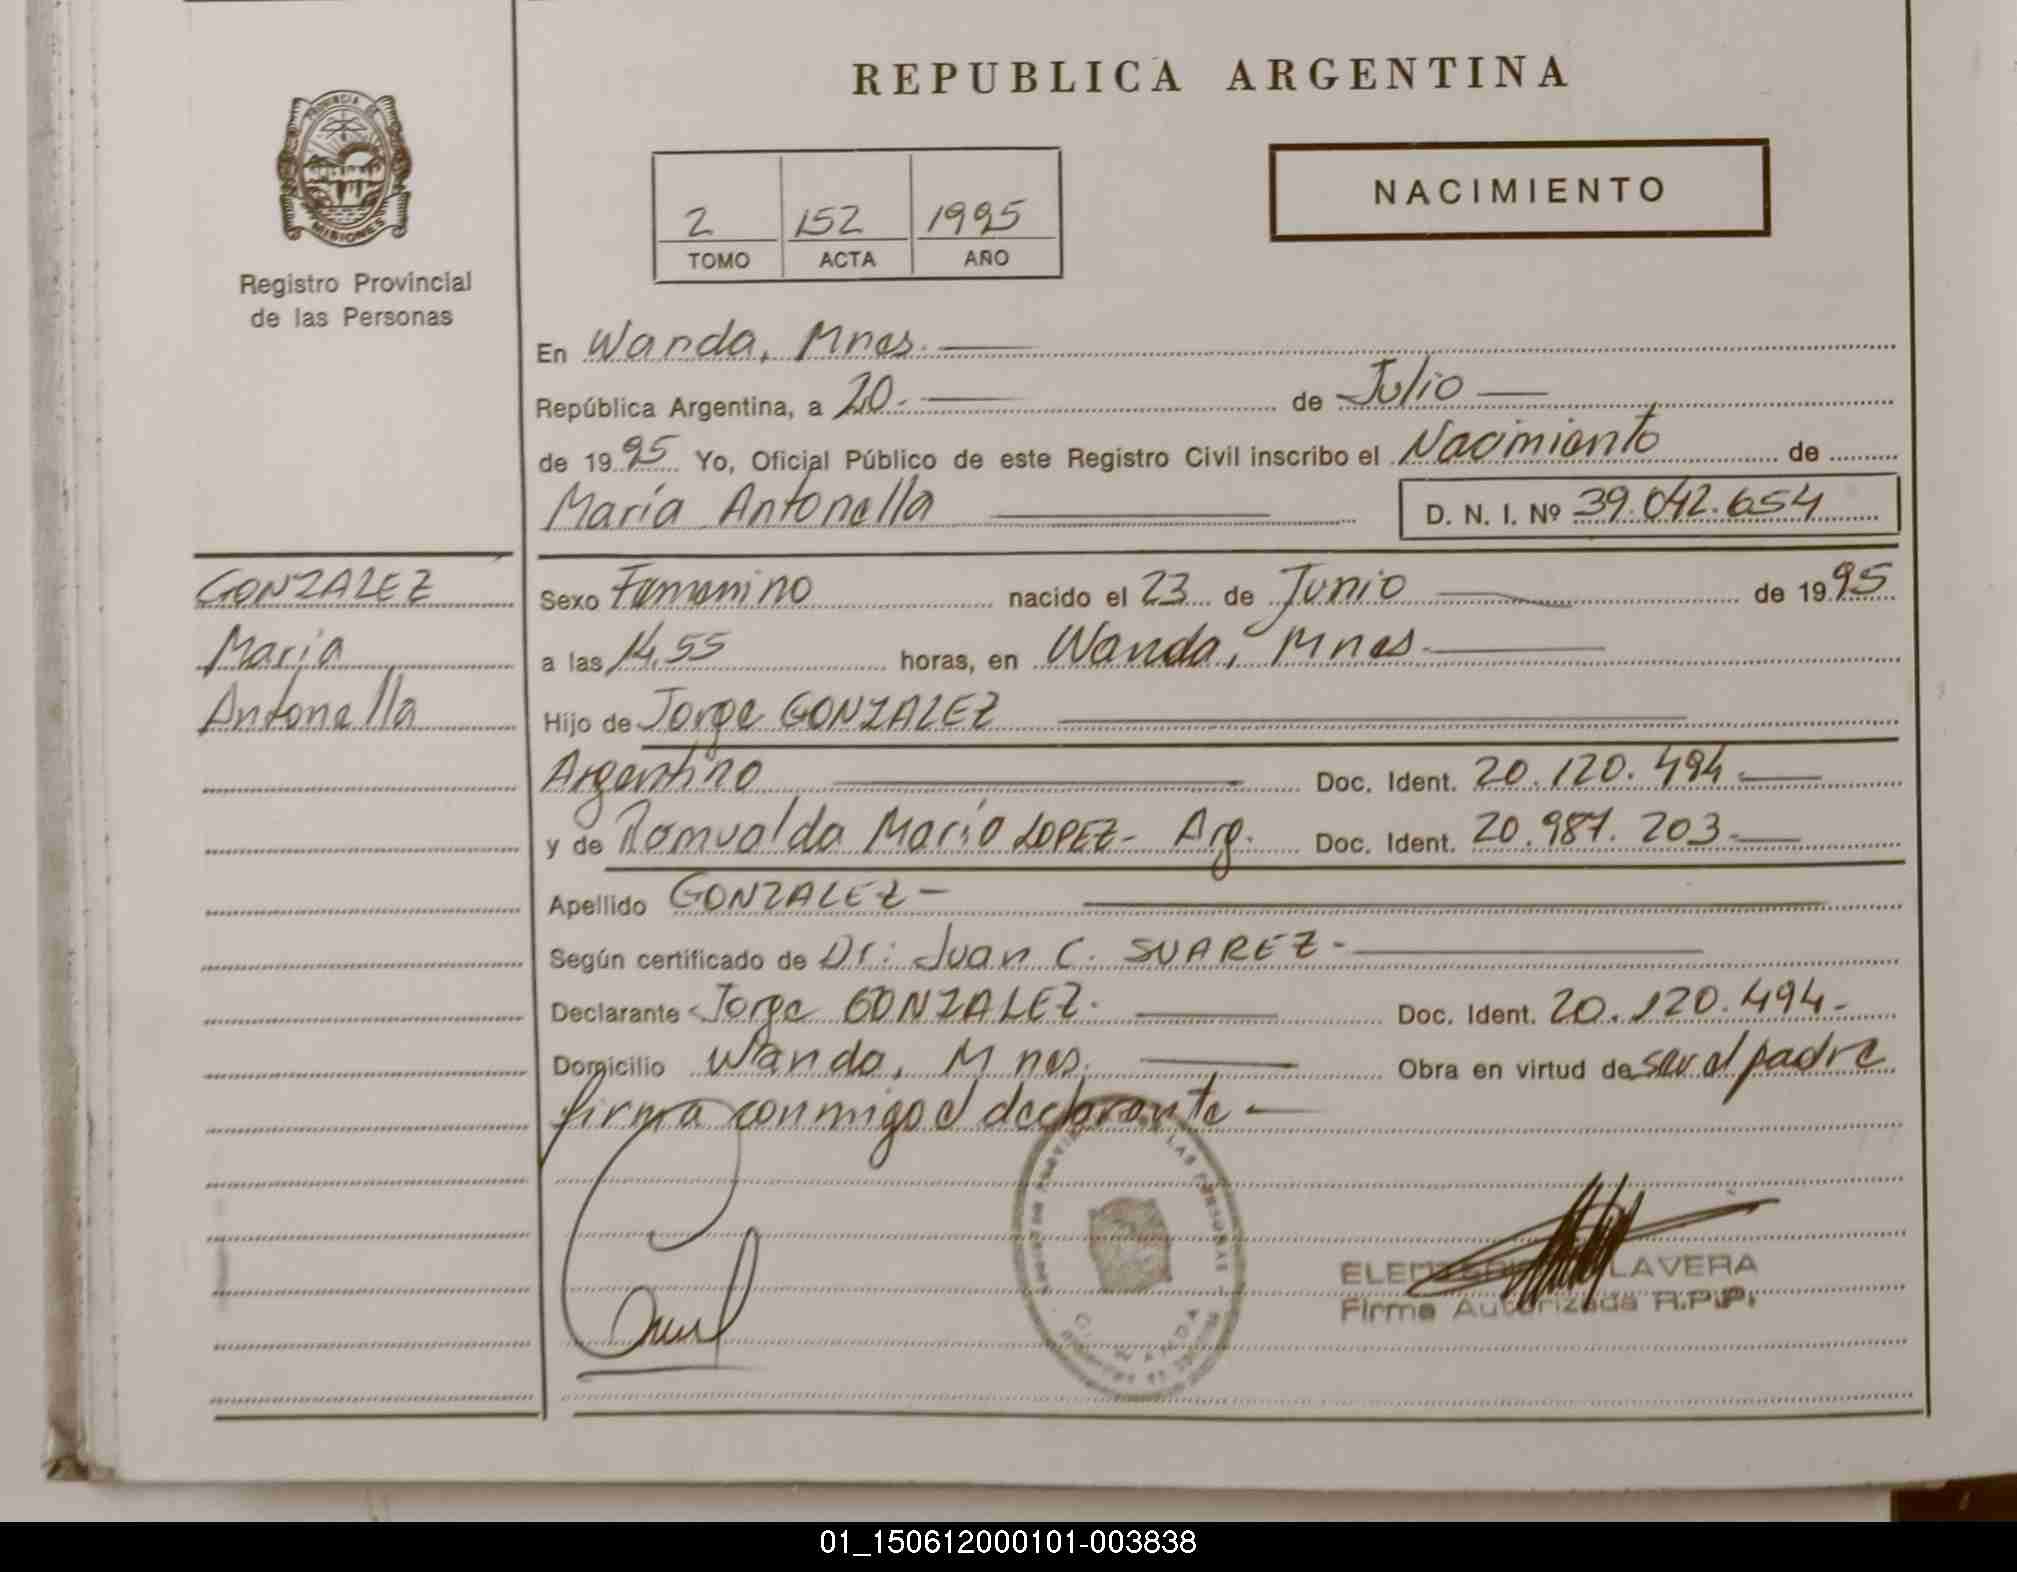 REPUBLICA ARGENTINA
PROVINCIA DE
MISIONES
Registro Provincial
de las Personas
NACIMIENTO
2 152 1995
TOMO ACTA AÑO
En Wanda, Mnes.
República Argentina, a 20. de Julio
de 1995 Yo, Oficial Público de este Registro Civil inscribo el Nacimiento de
María Antonella D. N. I. Nº 39.042.654
GONZALEZ
María
Antonella
Sexo Femenino nacido el 23 de Junio de 1995
a las 14,55 horas, en Wanda, Mnes.
Hijo de Jorge GONZALEZ
Argentino Doc. Ident. 20.120.494
y de Romualda María LOPEZ- Arg. Doc. Ident. 20.987.203.
Apellido GONZALEZ-
Según certificado de Dr: Juan C. SUAREZ-
Declarante Jorge GONZALEZ. Doc. Ident. 20.120.494-
Domicilio Wanda, Mnes. Obra en virtud de ser el padre
firma conmigo el declarante-
LAS PERSONAS
WANDA
LAVERA
Firma Autorizada R.P.P.
01_150612000101-003838